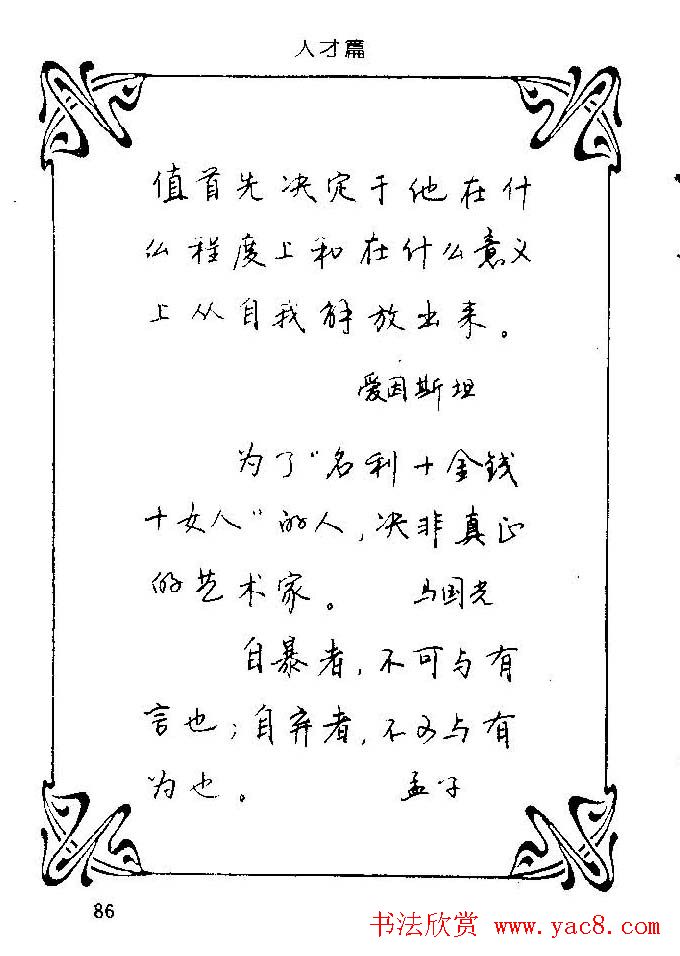 人才篇
值首先决定于他在什
么程度上和在什么意义
上从自我解放出来。
爱因斯坦
为了“名利＋金钱
＋女人”的人，决非真正
的艺术家。 马国光
自暴者，不可与有
言也；自弃者，不可与有
为也。 孟子
86
书法欣赏 www.yac8.com